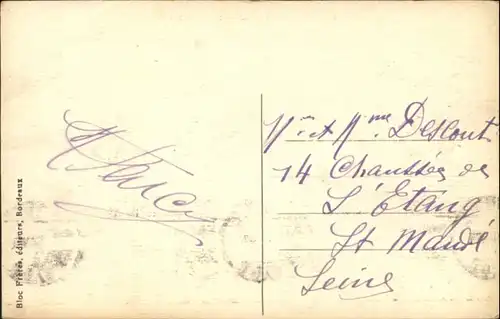 Mr et Mme Descout
14 Chaussée de
L'Étang
St Mandé
Seine
Bloc Frères, éditeurs, Bordeaux